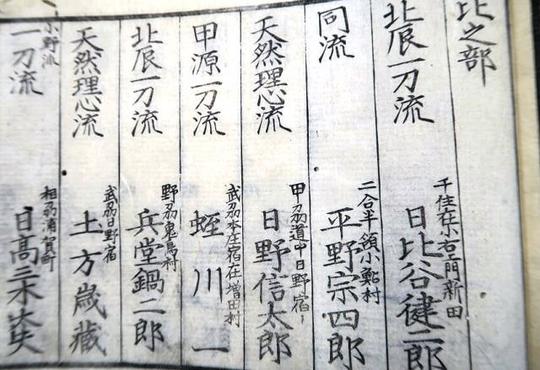 比之部
北辰一刀流
千住在小右エ門新田
日比谷健二郎
同流
二合半領
平野宗四郎
天然理心流
甲刕道中日野宿
日野信太郎
甲源一刀流
武刕本庄宿在増田村
蛭川一
北辰一刀流
野刕鬼島村
兵堂鍋二郎
天然理心流
武刕日野宿
土方歳蔵
小野派
一刀流
相刕浦賀町
日高三木